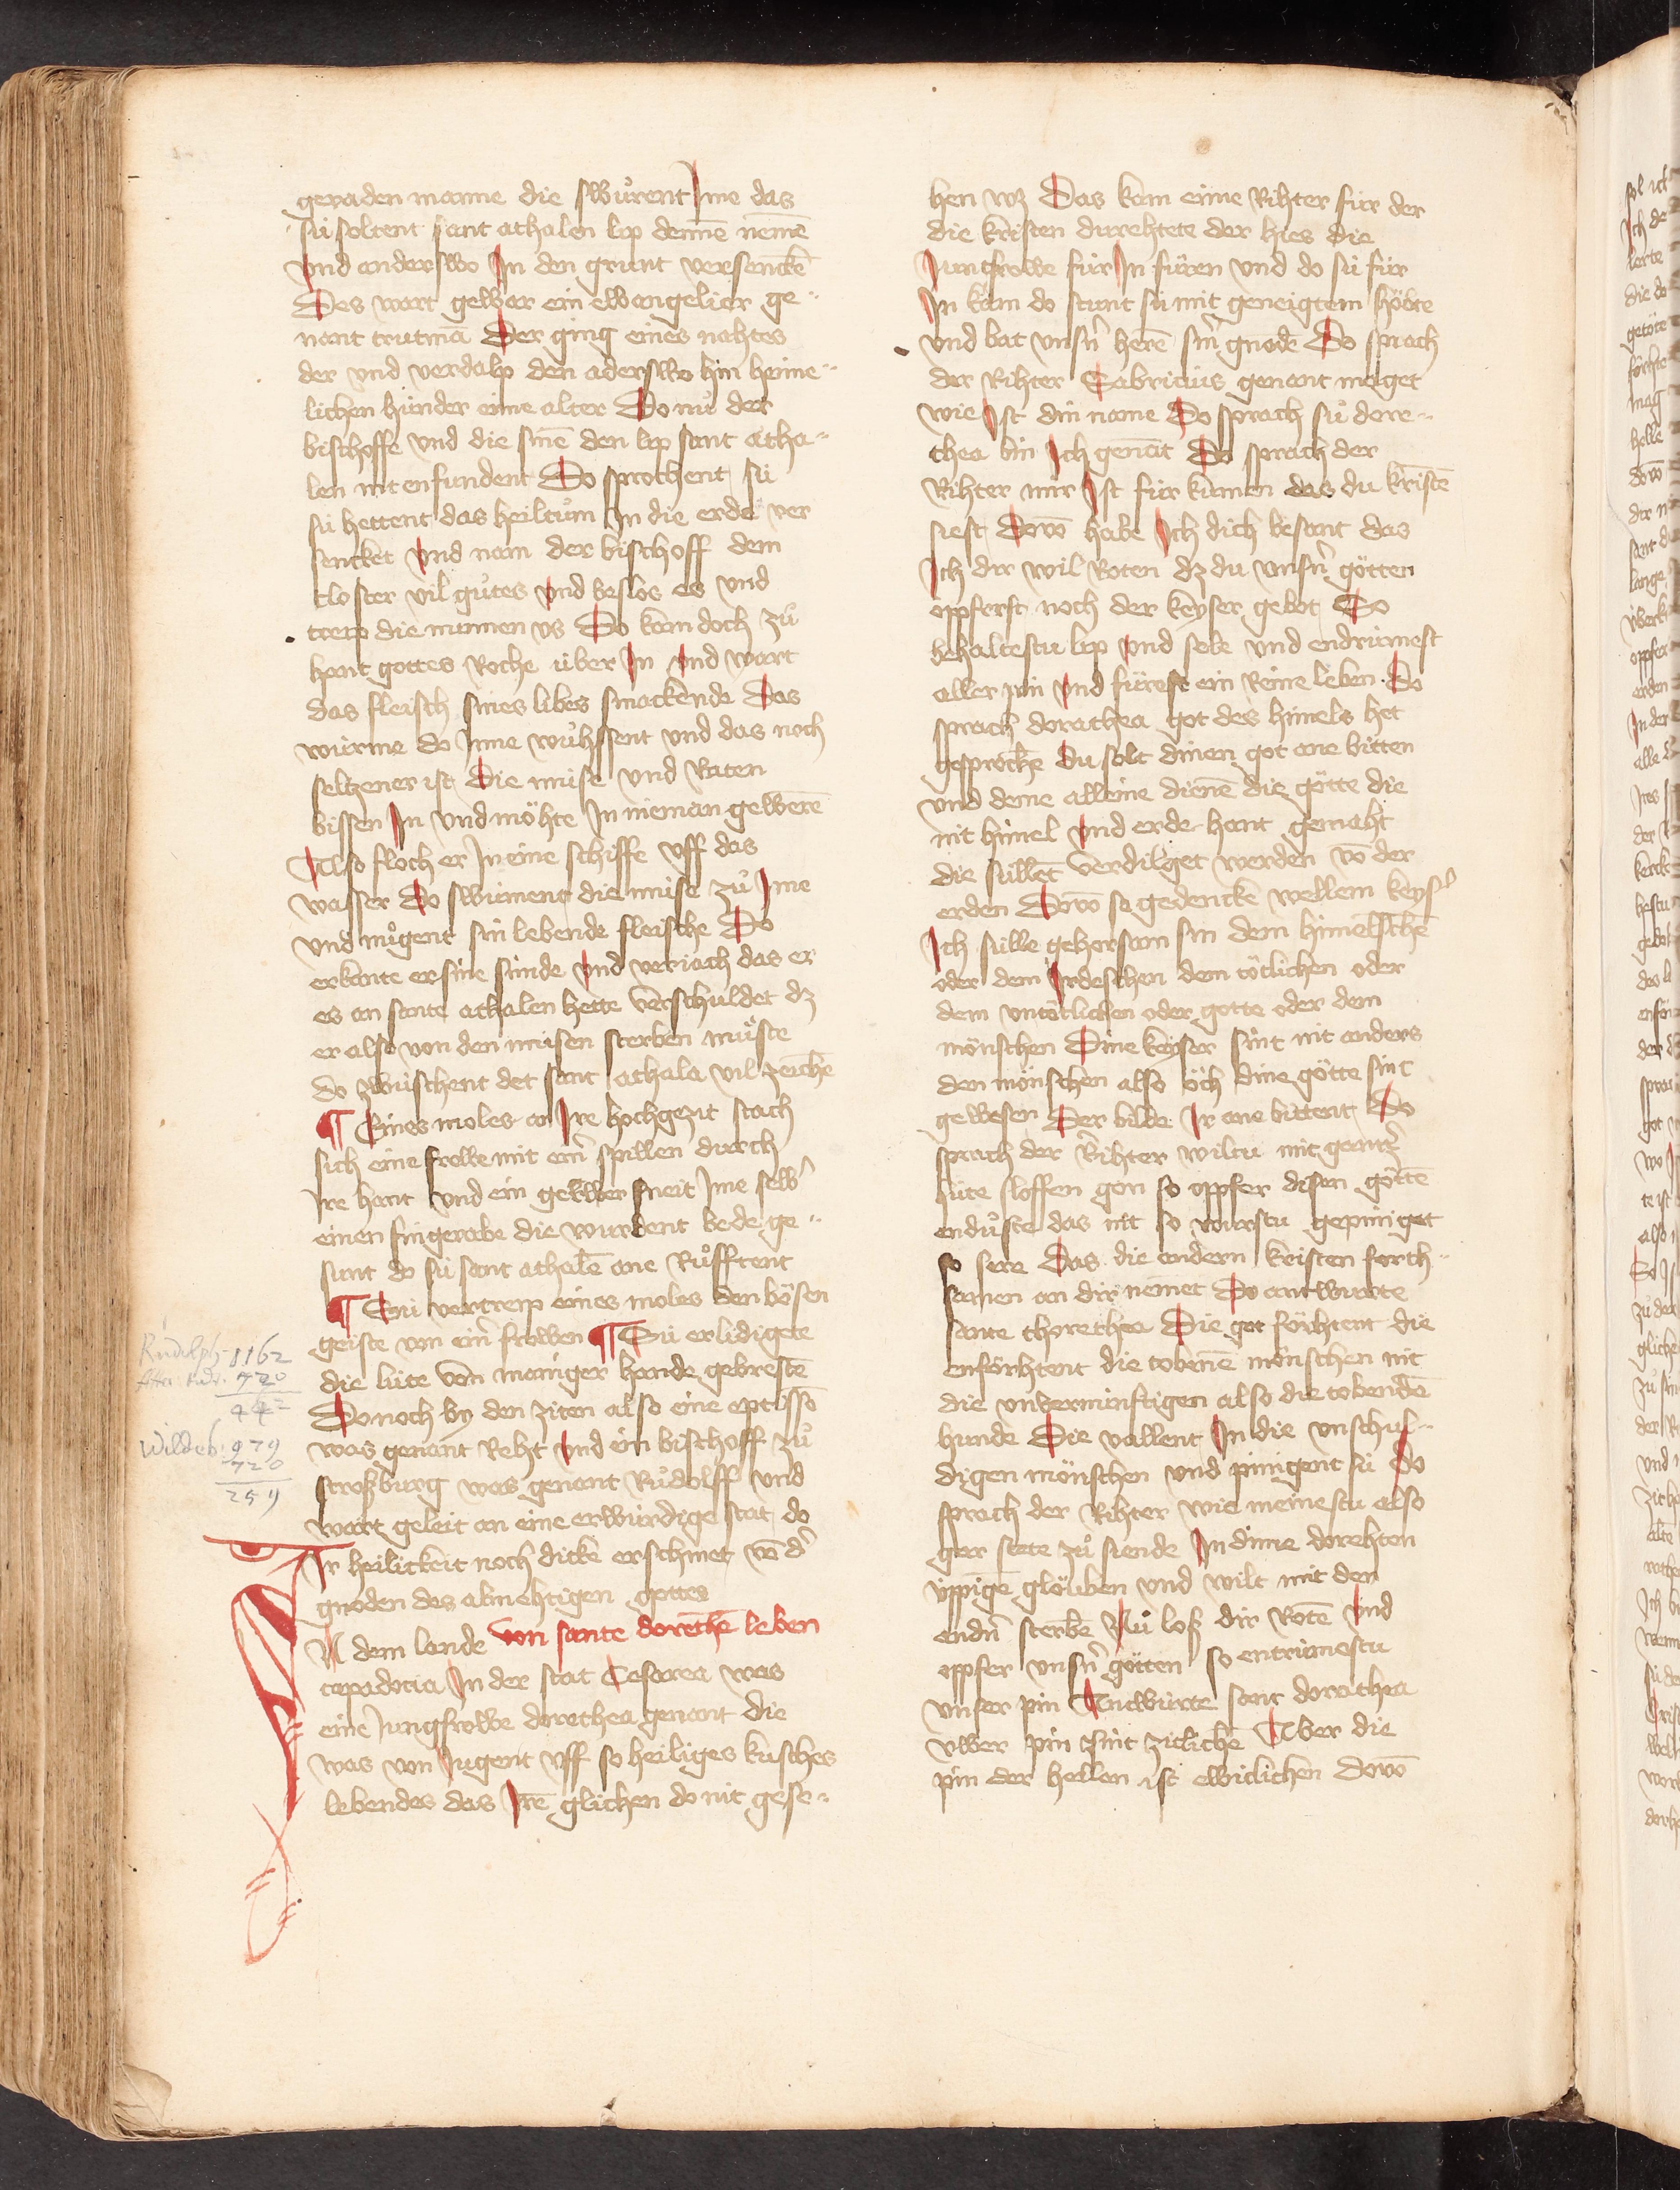 geraden manne die swůrent Ime das
sú soltent sant athalen lip dennē nemē
vnd anderswo In den grunt versenckē
Des wart gewar ein ewangelier ge-
nant trutmā Der ging eines nahtes
dar vnd verdalp den aderswo hin heime-
lichen hinder eime alter Do nů der
bischoffe vnd die sinē den lip sant atha-
len nit enfundent Do sprochent sú
sú hettent das heiltům In die erde ver
sencket vnd nam der bischoff dem
closter vil gůtes vnd beslos es vnd
treip die nunnen vs Do kam doch zů
hant gottes Roche úber In vnd wart
das fleisch sines libes smackende Das
wúrme do Inne wůhssent vnd das noch
seltzener ist Die múse vnd Raten
bissen In vnd möhte In nieman gewerē
Also floch er In eine schiffe vff das
wasser Do swúment die múse zů Ime
vnd nůgent sin lebende fleische Do
erkante er sine súnde vnd veriach das er
es an sante athalen hette verschuldet dz
er also von den músen sterben můste
do zwúschent det sant athala vil zeichē
¶ Eines moles an Ire hochgezit stach
sich eine frowe mit eīr spillen durch
Ire hant vnd ein gewber sneit Ime selbˀ
einen finger abe die wurdent bede ge-
sunt do sú sant athalē ane Růfftent
¶ Sú vertreip eines moles den bösen
geiste von eīr frowen ¶ Sú erlidigete
die lúte von maniger hande gebrestē
Donoch by den ziten also eine eptissō
was genant Reht vnd ein bischoff zů
stroßburg was genant Růdolff vnd
wart geleit an eine erwúrdige stat do
Ir heilickeit noch dicke erschinet vō dˀ
gnoden des almehtigen gottes
IN dem lande von sante dorethē leben
capadocia In der stat Cesarea was
eine Jungfrowe dorethea genant die
was von Jugent vff so heiliges kúsches
lebendes das Irē glichen do nit gese-
Rudolph - 1162
720
442
Wildeb. 979
720
259
hen wz Das kam eime Rihter fúr der
die kristen durehtete der hies die
Juncfrowe fúr In fúren vnd do sú fúr
In kam do stunt sú mit geneigtem höbte
vnd bat vnsˀn herē sīr gnode Do sprach
der Rihter Fabricius genant maget
wie Ist din name Do sprach sú dore-
thea bin Ich genāt Do sprach der
Rihter mir Ist fúr kumen das du kristē
siest Dovō habe Ich dich besant das
Ich dir wil Roten dz du vnsˀn götten
oppferst noch der keyser gebot So
behaltestu lip vnd sele vnd endrinnest
aller pin vnd fúrest ein Reine leben Do
sprach dorathea got des himels het
gesprockē Du solt dinen got ane bitten
vnd deme alleine dienē die götte die
nit himel vnd erde hant gemaht
die súllēt verdilget werden vō der
erden Dovō so gedencke wellem keysˀ
Ich súlle gehorsam sin dem himelschē
oder dem Irdeschen dem tötlichen oder
dem vntötlichen oder gotte oder dem
mönschen Dine keyser sint nit anders
den mönschen also öch dine götte sint
gewesen Der bilde Ir ane bittent Do
sprach der Rihter wiltu mit gantzˀ
húte sloffen gon so oppfer disen göttē
endůste das nit so wurstu gepiniget
so sere Das die andern kristen forch-
samen an dir nēmet Do antwurte
sante thorethea Die got förhtent die
enförhtent die tobenē mönschen nit
die vnvernúnftigen also die tobendē
hunde Die vallent In die vnschul-
digen mönschen vnd pinigent sú Do
sprach der Rihter wie meinestu also
gar stete zů siende In dime dorehten
úppigē glöuben vnd wilt mit den
endˀn sterbē Nů loß dir Rotē vnd
oppfer vnsˀn götten so entrinnestu
vnser pin Antwúrte sant dorathea
vwer pin sint zitlichē Aber die
pin der hellen ist ewiclichen Dovō